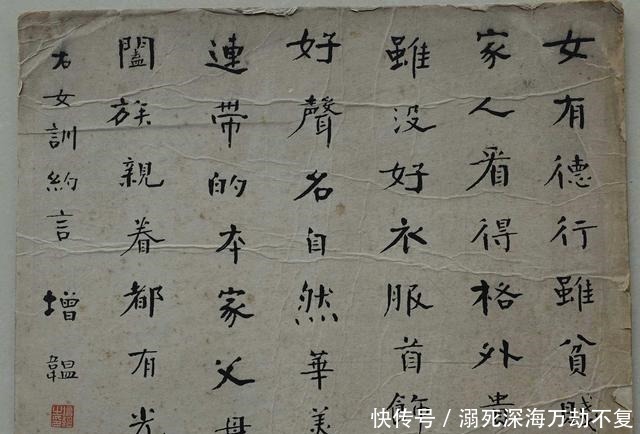 女有德行雖貧賤
家人看得格外貴
雖没好衣服首飾
好聲名自然華美
連帶的本家父母
闔族親眷都有光
右女訓約言 增韞
快传号/溺死深海万劫不复